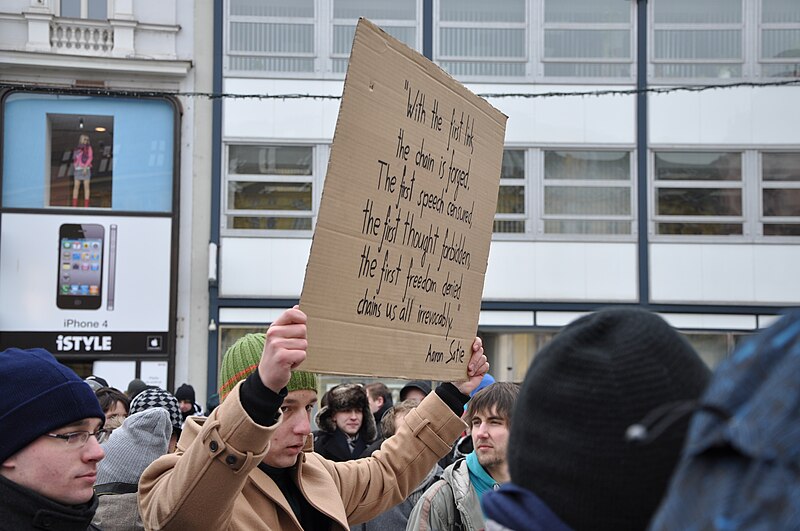 "With the first link,
the chain is forged.
The first speech censured,
the first thought forbidden,
the first freedom denied
chains us all irrevocably."
Aaron Satie
iPhone 4
iSTYLE